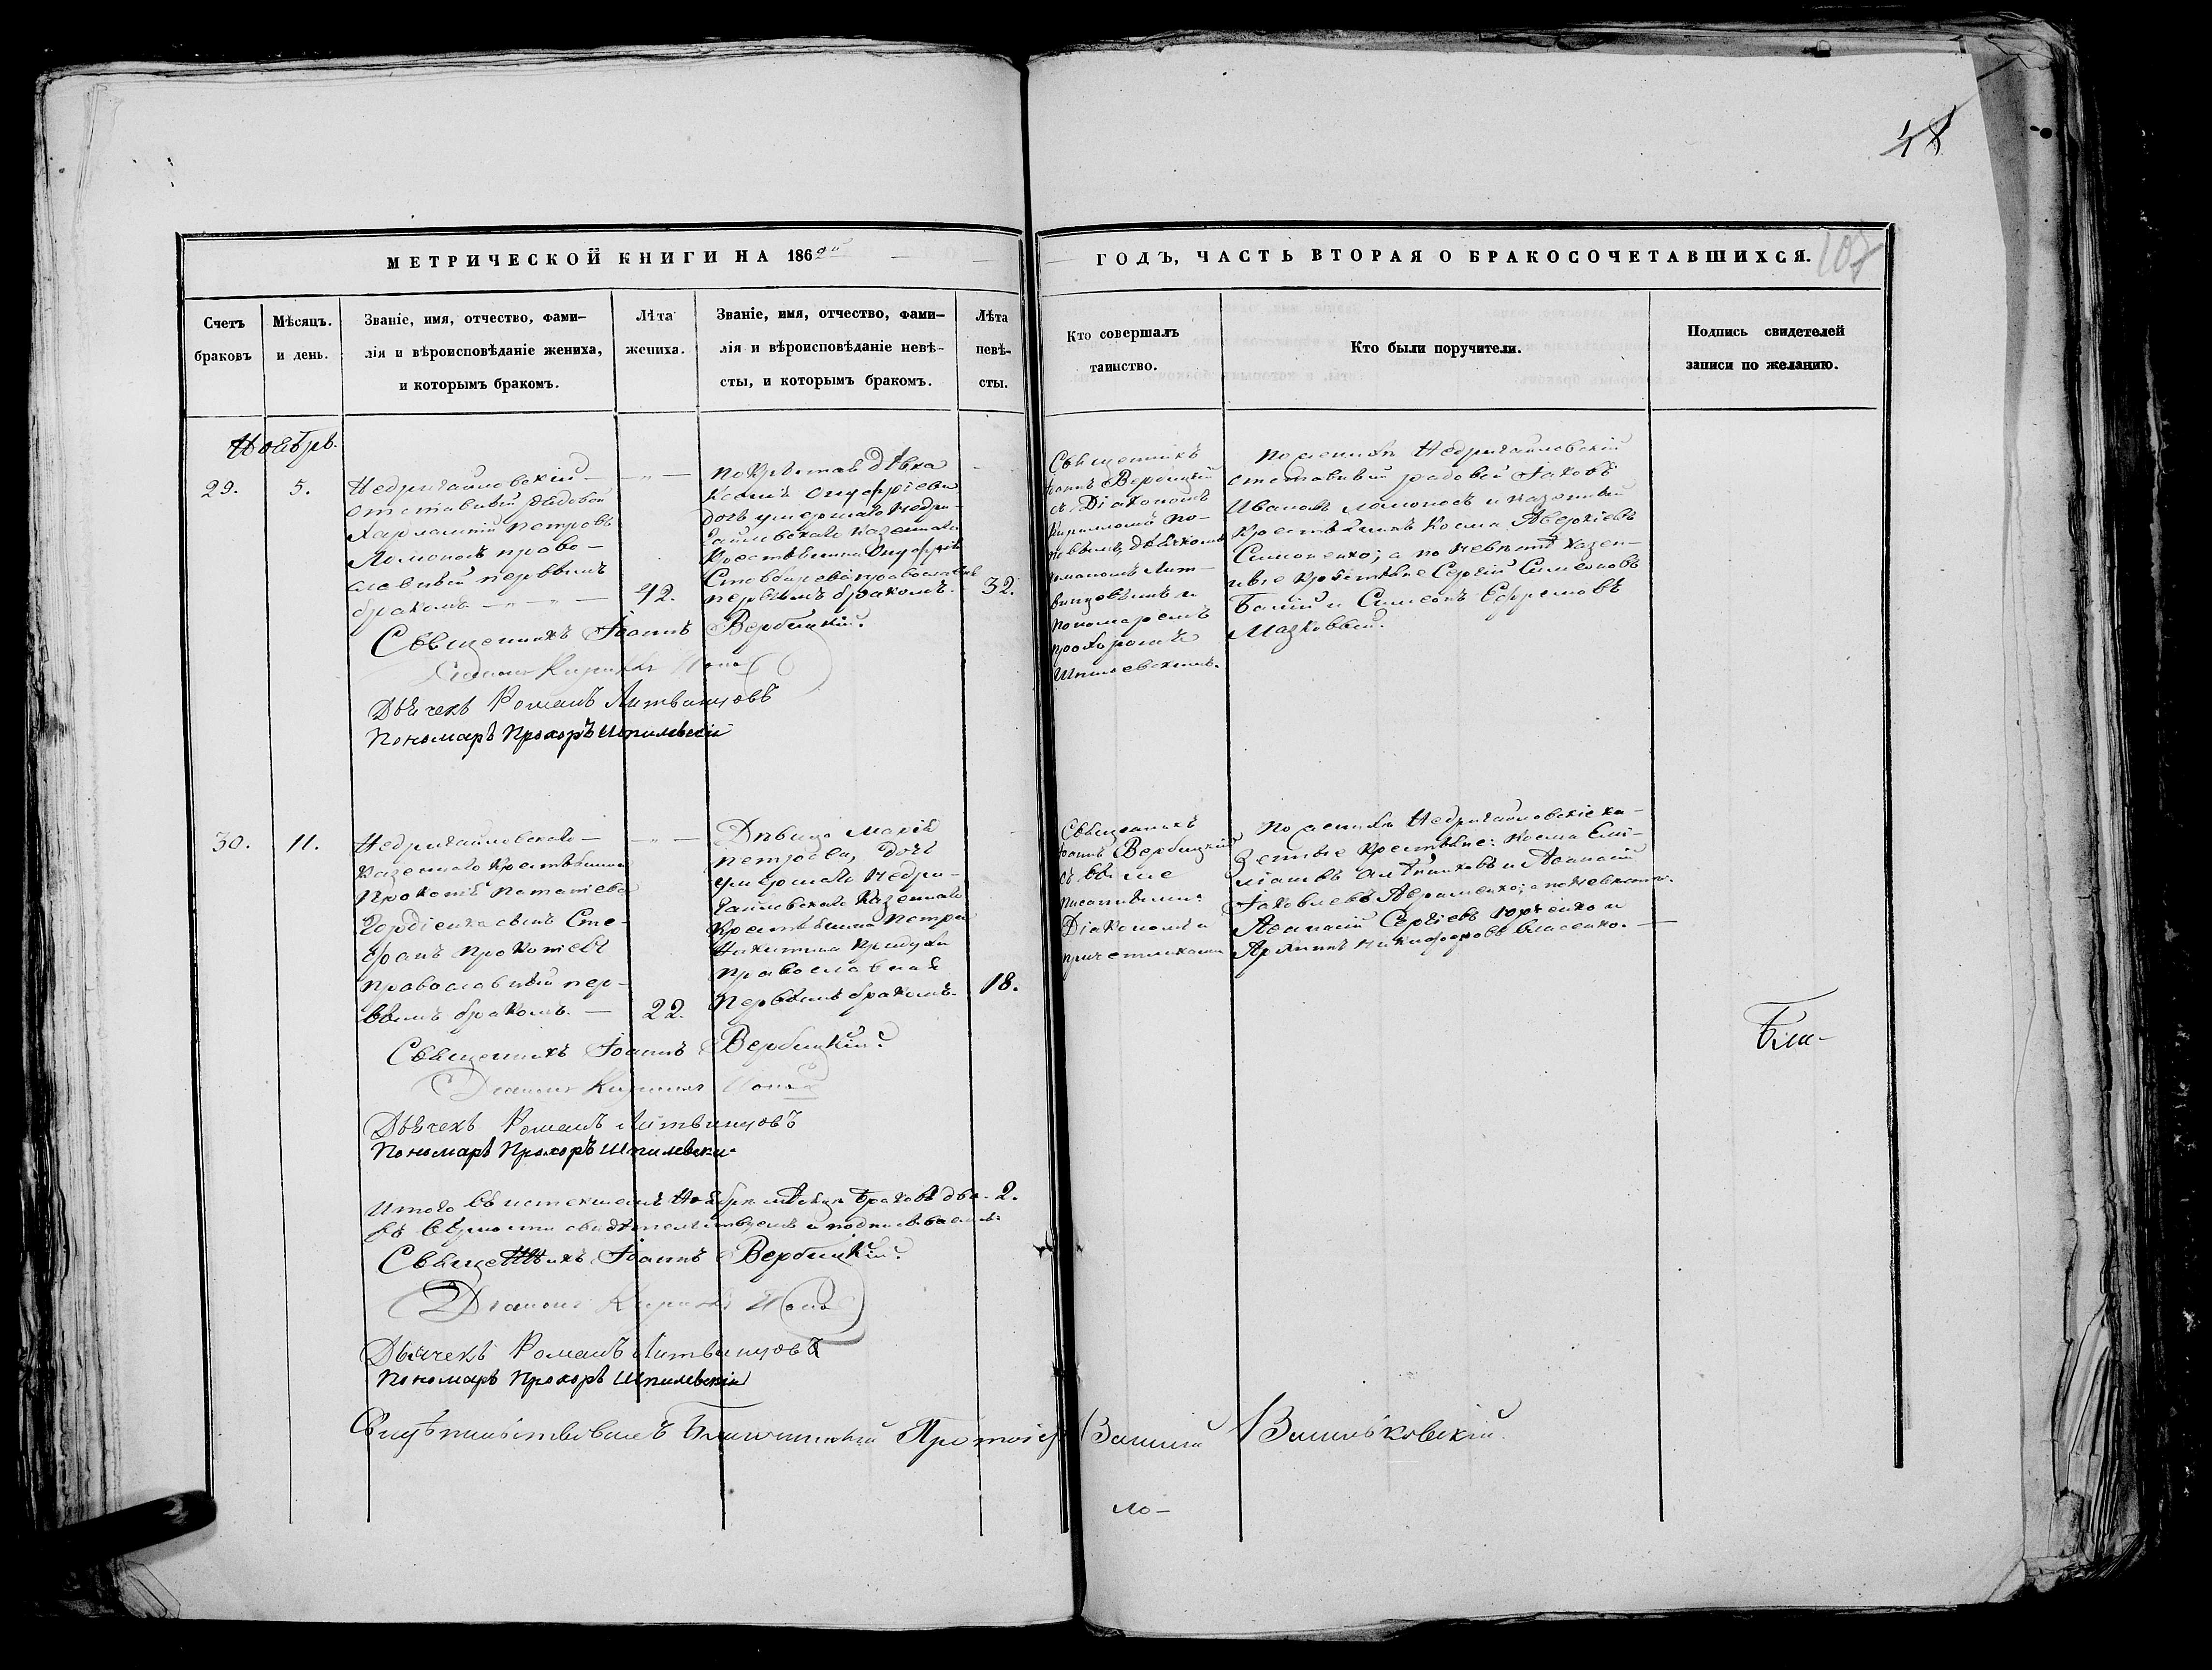 48
МЕТРИЧЕСКОЙ КНИГИ НА 186
ГОДЪ, ЧАСТЬ ВТОРАЯ О БРАКОСОЧЕТАВШИХСЯ.
107
Счетъ
браковъ
Мѣсяцъ.
и день.
Званіе, имя, отчество, фами–
лія и вѣроисповѣданіе жениха,
и которымъ бракомъ.
Лѣта
жениха.
Званіе, имя, отчество, фами–
лія и вѣроисповѣданіе невѣ–
сты, и которымъ бракомъ.
Лѣта
невѣ–
сты.
Кто совершалъ
таинство.
Кто были поручители.
Подпись свидетелей
записи по желанію.
Ноябрь.
29.
5.
Недригайловскій
отставный рядовой
Харлампій Петровъ
Ломоносъ право–
славный первымъ
бракомъ
42.
покрытая дѣвка
Онуфріева
дочь умершаго Недри–
гайловскаго казеннаго
крестьянина Онуфрія
православная
первымъ бракомъ.
32.
Священникъ
Іоаннъ Вербицкій
съ Діакономъ
Кирилломъ По–
повымъ, дьячкомъ
Романомъ Лит–
винцовымъ и
пономаремъ
Прохоромъ
Шпилевскимъ.
По женихѣ Недригайловскій
отставный рядовой Іаковъ
Ивановъ Ломоносъ и казенный
крестьянинъ Косма Аверкіевъ
Симоненко; а по невѣстѣ казен–
ные крестьяне Сергій Симеоновъ
и Симеонъ Ефремовъ
Мазковый.
Священникъ Іоаннъ Вербицкій.
Діаконъ Кириллъ Поповъ
Дьячекъ Романъ Литвинцовъ
Пономарь Прохоръ Шпилевскій
30.
11.
Недригайловскаго
казеннаго крестьянина
Прокопія Потапіева
Гордіенка сынъ Сте–
фанъ Прокопіевъ
православный пер–
вымъ бракомъ.
22.
Дѣвица Марія
Петрова, дочь
умершаго Недри–
гайловскаго казеннаго
крестьянина Петра
Никитина
православная
первымъ бракомъ.
18.
Священникъ
Іоаннъ Вербицкій
съ выше
писанными
Діакономъ и
причетниками
По женихѣ Недригайловскіе ка–
зенные крестьяне: Косма Еми–
ліановъ Алейниковъ и Аѳанасій
Іаковлевъ Авраменко; а по невѣстѣ
Аѳанасій Сергіевъ Юрченко и
Архиппъ Никифоровъ Власенко.
Священникъ Іоаннъ Вербицкій.
Діаконъ Кириллъ Поповъ
Дьячекъ Романъ Литвинцовъ
Пономарь Прохоръ Шпилевскій
Бла–
Итого въ истекшемъ Ноябрѣ мѣсяцѣ браковъ два. 2.
въ вѣрности свидѣтельствуемъ и подписываемся:
Священникъ Іоаннъ Вербицкій.
Діаконъ Кириллъ Поповъ
Дьячекъ Романъ Литвинцовъ
Пономарь Прохоръ Шпилевскій
Свидѣтельствовалъ Благочинный Протоіерей Василій Васильковскій.
ло–